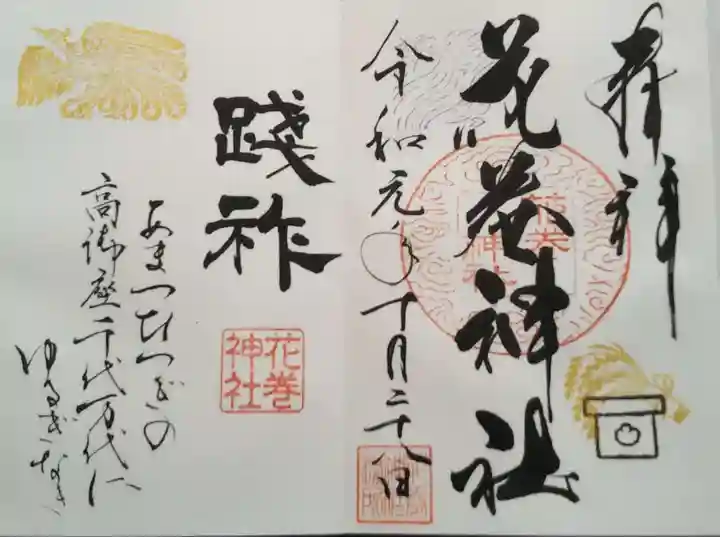 奉拝
花巻神社
花巻
神社
令和元年十月二十八日
踐祚
花巻
神社
あまつひつぎの
高御座千代万代に
ゆるぎなき